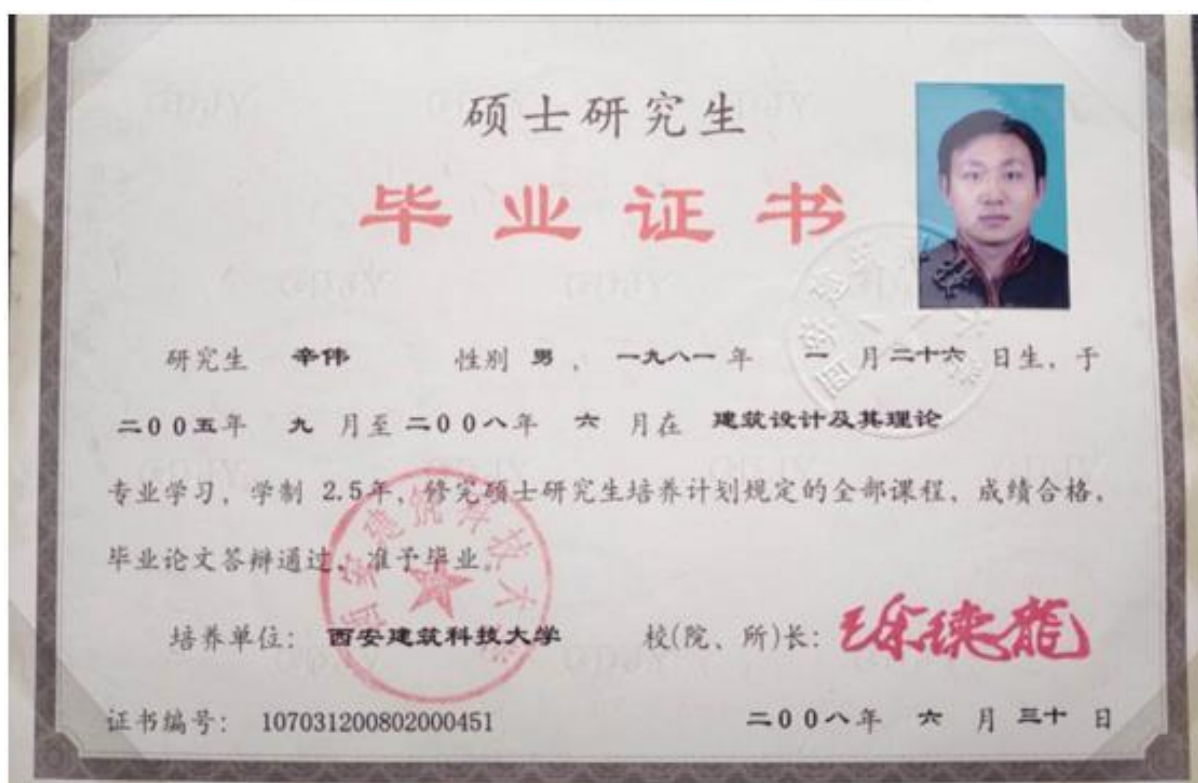 硕士研究生
毕业证书
研究生 辛伟 性别 男 , 一九八一 年 一 月 二十六 日生, 于
二00五年 九 月至 二00八年 六 月在 建筑设计及其理论
专业学习, 学制 2.5年, 修完硕士研究生培养计划规定的全部课程, 成绩合格,
毕业论文答辩通过, 准予毕业。
西安建筑科技大学
培养单位: 西安建筑科技大学 校(院、所)长: 徐德龙
证书编号: 107031200802000451 二00八年 六 月 三十 日